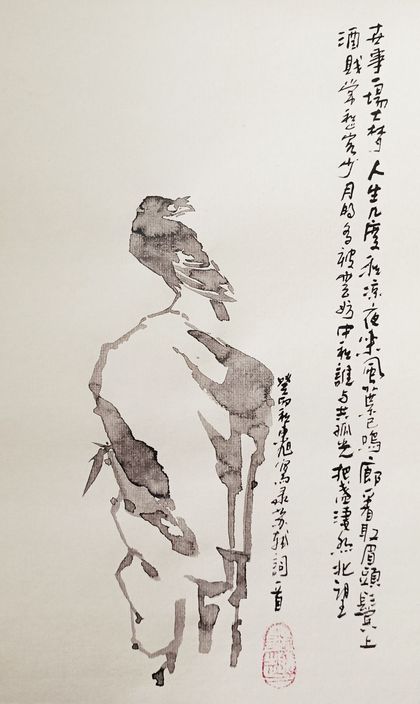 世事一場大梦人生几度秋凉夜来風葉已鳴廊看取眉頭鬢上
酒賤常愁客少月明多被雲妨中秋誰与共孤光把盞凄然北望
癸卯秋旭寫录苏軾詞一首